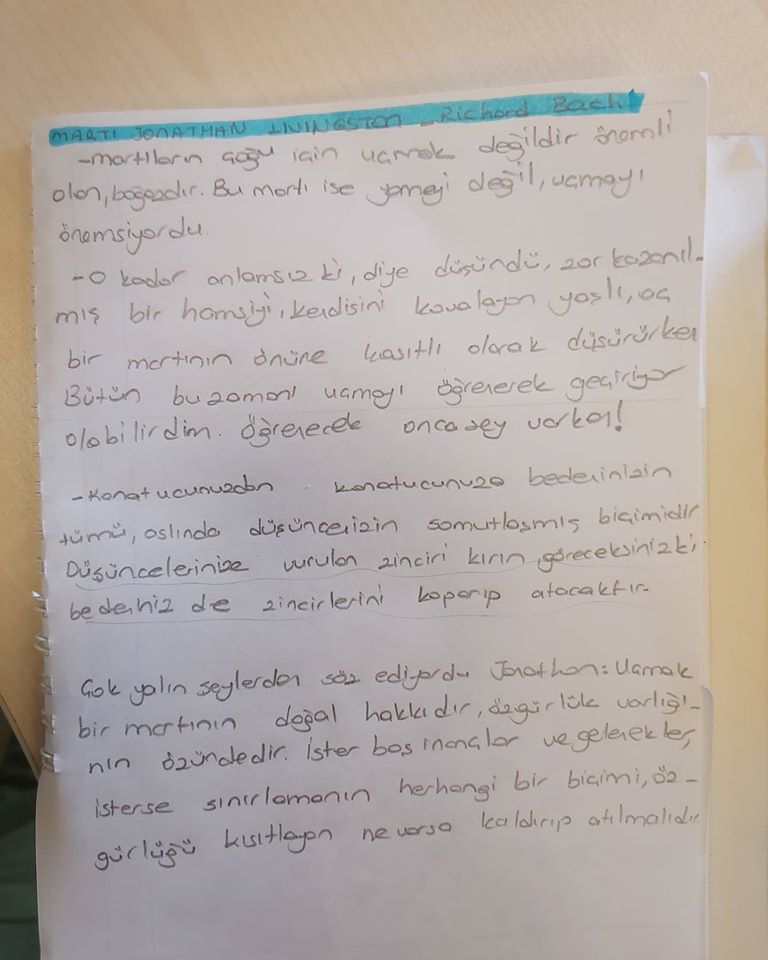 MARTI JONATHAN LIVINGSTON - Richard Bach
-martıların çoğu için uçmak değildir önemli
olan, boğazdır. Bu martı ise yemeyi değil, uçmayı
önemsiyordu.
-O kadar anlamsız ki, diye düşündü, zor kazanıl-
mış bir hamsiyi, kendisini kovalayan yaşlı, aç
bir martının önüne kasıtlı olarak düşürürken
Bütün bu zamanı uçmayı öğrenerek geçiriyor
olabilirdim. Öğrenecek onca şey varken!
-Kanat ucunuzdan kanat ucunuza bedeninizin
tümü, aslında düşüncenizin somutlaşmış biçimidir.
Düşüncelerinize vurulan zinciri kırın göreceksiniz ki,
bedeniniz de zincirlerini koparıp atacaktır.
Çok yalın şeylerden söz ediyordu Jonathan: Uçmak
bir martının doğal hakkıdır, özgürlük varlığı-
nın özündedir. İster boş inançlar ve gelenekler,
isterse sınırlamanın herhangi bir biçimi, öz-
gürlüğü kısıtlayan ne varsa kaldırıp atılmalıdır